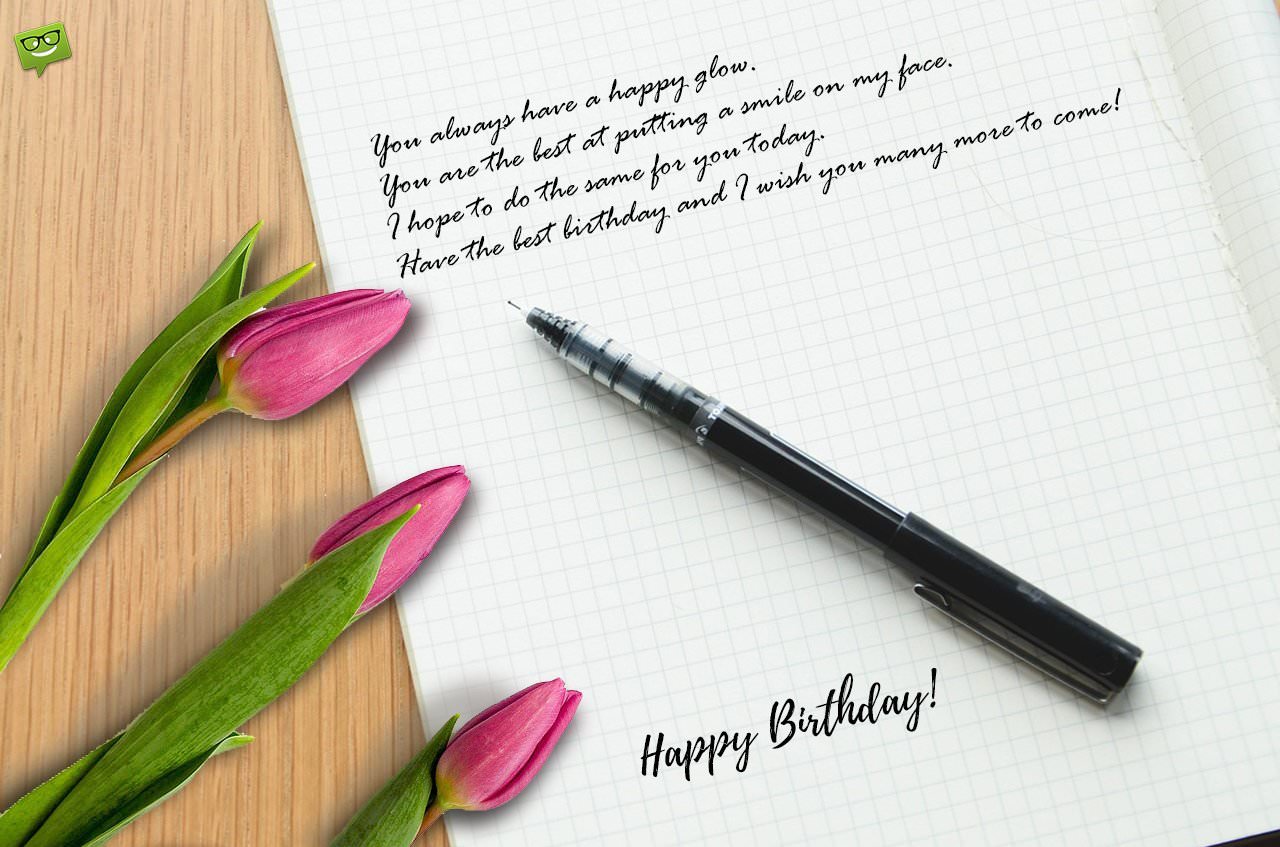 You always have a happy glow.
You are the best at putting a smile on my face.
I hope to do the same for you today.
Have the best birthday and I wish you many more to come!
Happy Birthday!